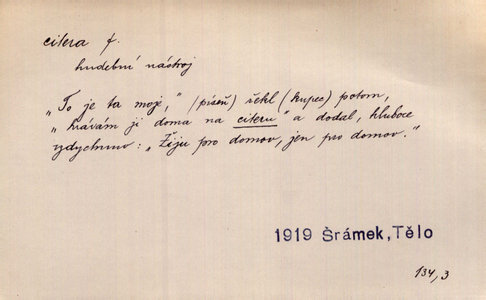 citera f.
hudební nástroj
„To je ta moje," /píseň) řekl (kupec) potom,
„hrávám ji doma na citeru" a dodal, hluboce
vzdychnuv: „Žiju pro domov, jen pro domov."
1919 Šrámek, Tělo
134,3